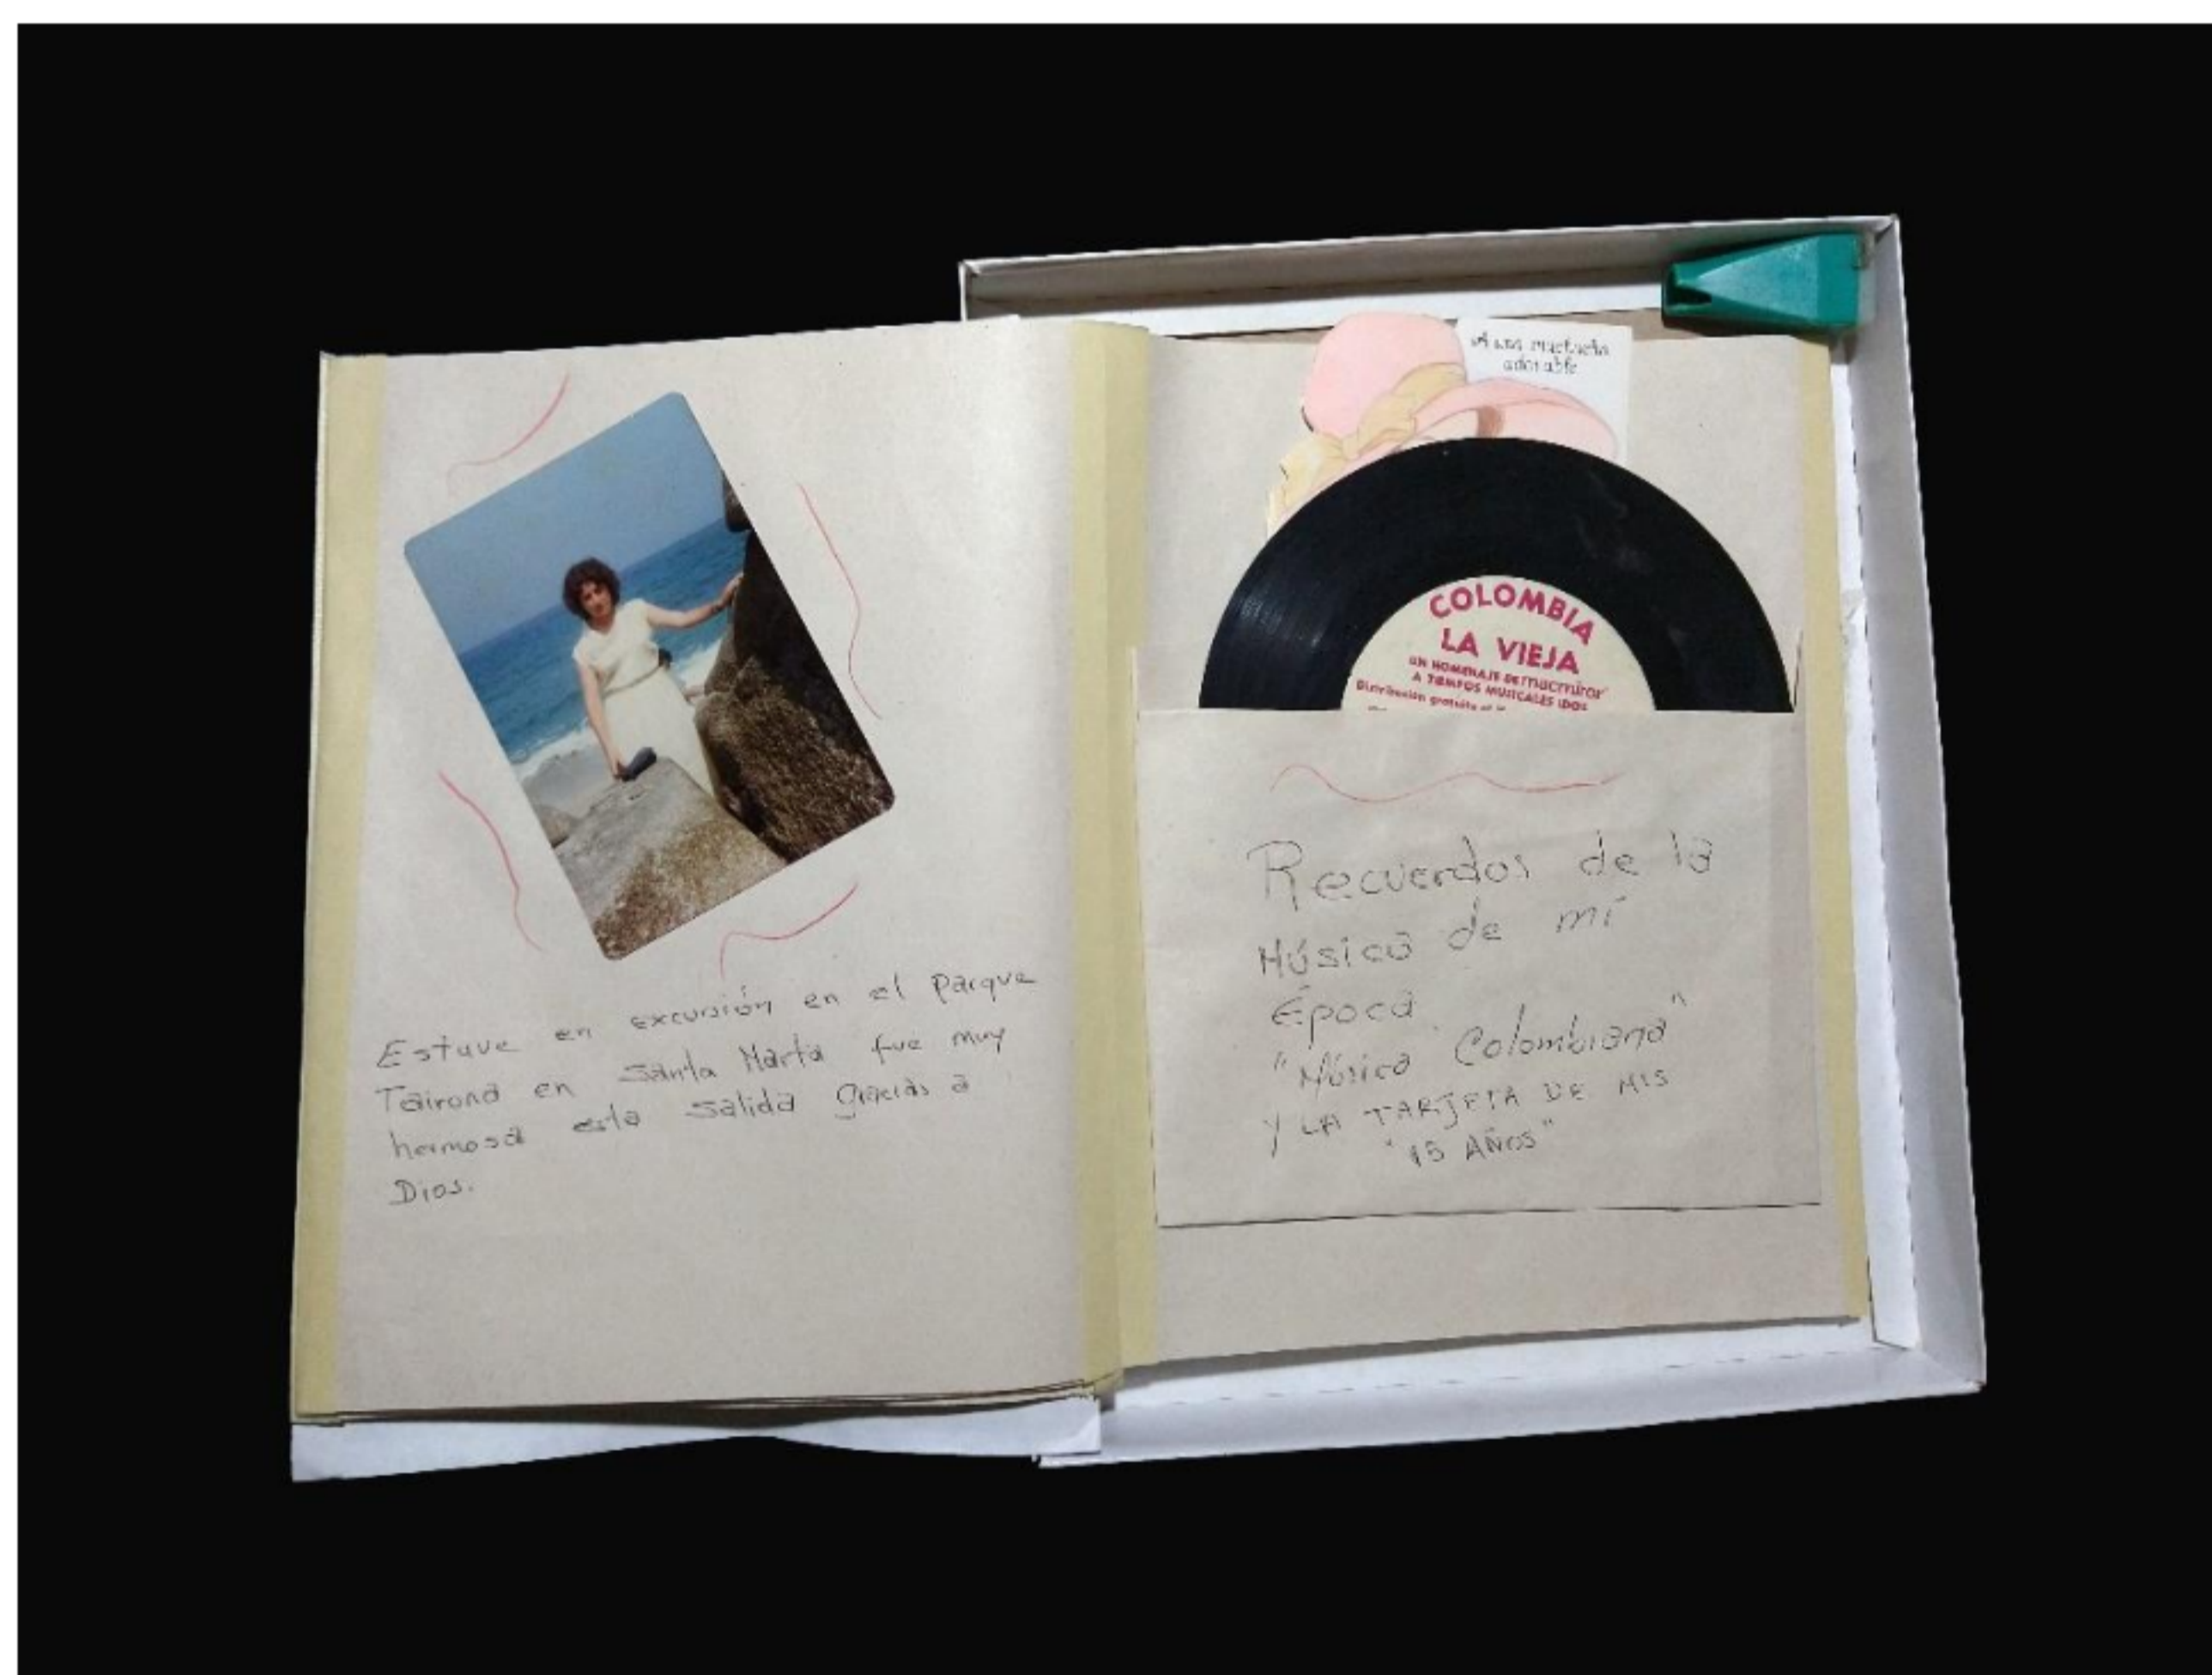 Estuve en excursión en el Parque
Tairona en Santa Marta fue muy
hermosa esta salida gracias a
Dios.
A una muchacha
adorable
COLOMBIA
LA VIEJA
UN HOMENAJE DE
A TIEMPOS MUSICALES IDOS
Distribución gratuita
Recuerdos de la
Música de mí
Época
"Música Colombiana"
Y LA TARJETA DE MIS
"15 AÑOS"